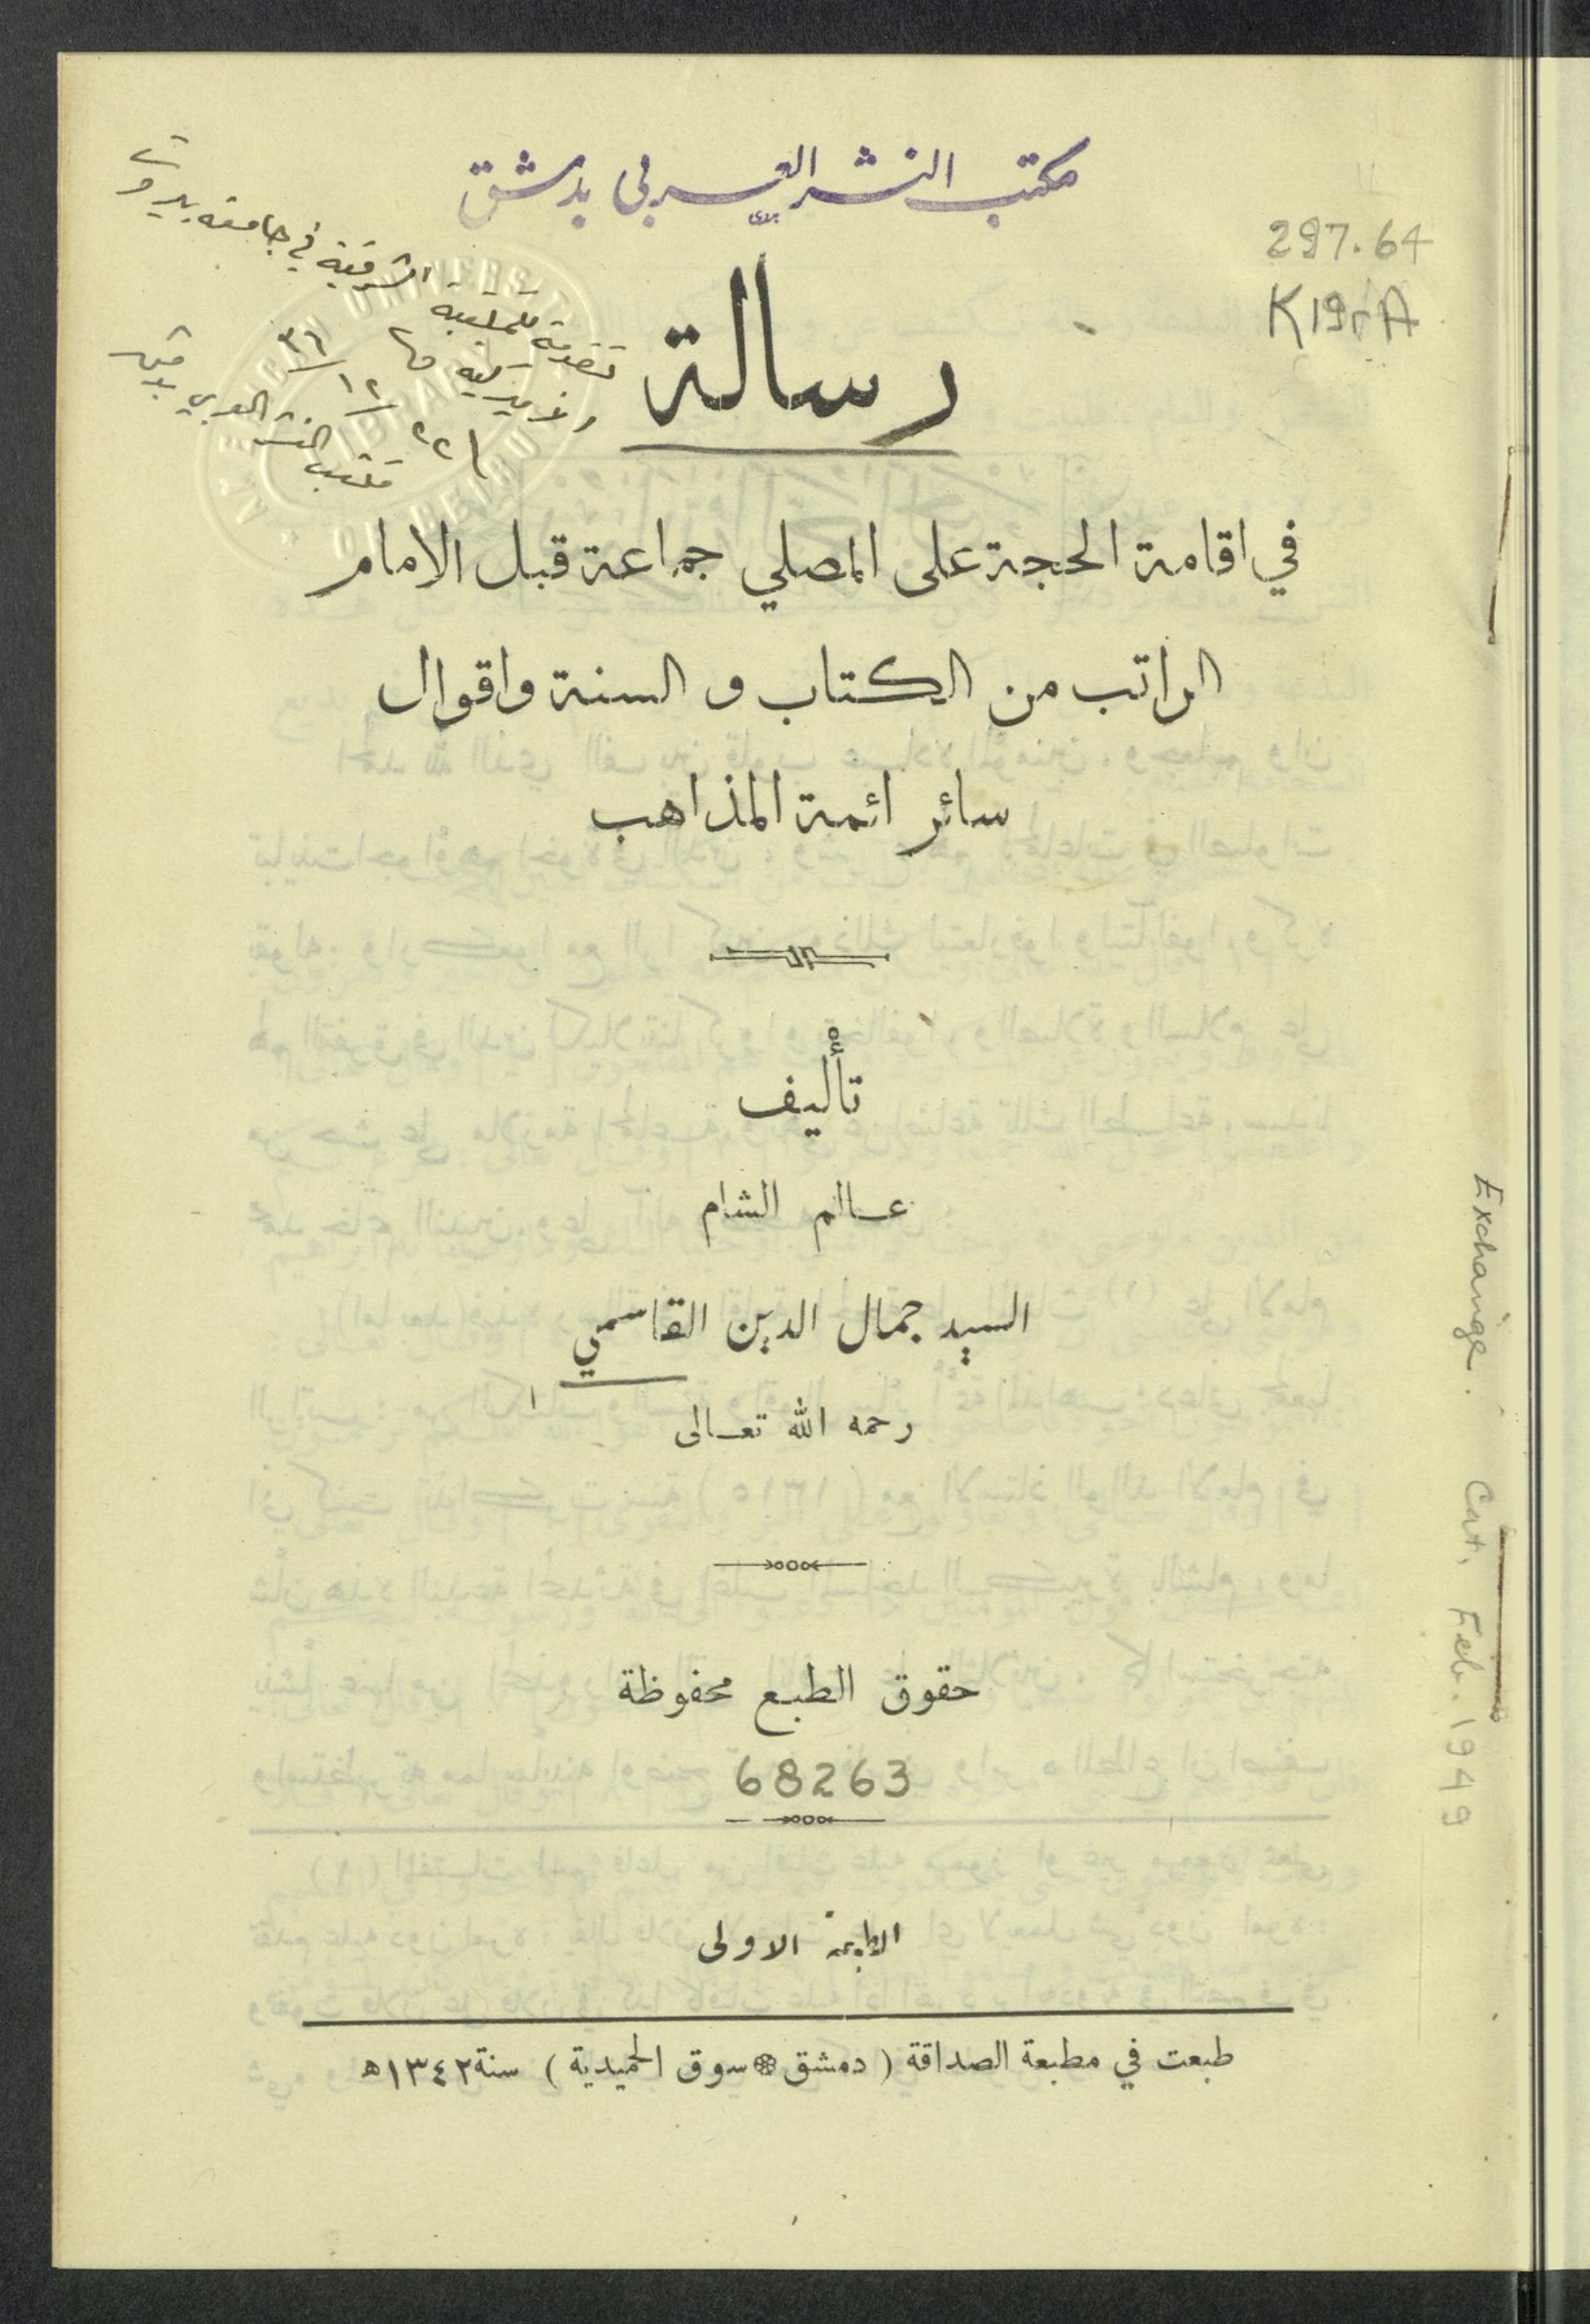 مكتب النشر العربي بدمشق
297.64
K19rA
تقدمة للمكتبة الشرقية في جامعة بيروت
الاميركية
مكتب النشر العربي بدمشق
رسالة
في اقامة الحجة على المصلي جماعة قبل الامام
الراتب من الكتاب و السنة واقوال
سائر ائمة المذاهب
تأليف
عالم الشام
السيد جمال الدين القاسمي
رحمه الله تعالى
حقوق الطبع محفوظة
68263
الطبعة الاولى
طبعت في مطبعة الصداقة ( دمشق سوق الحميدية ) سنة ١٣٤٢ه
Exchange. Cat. Feb. 1949